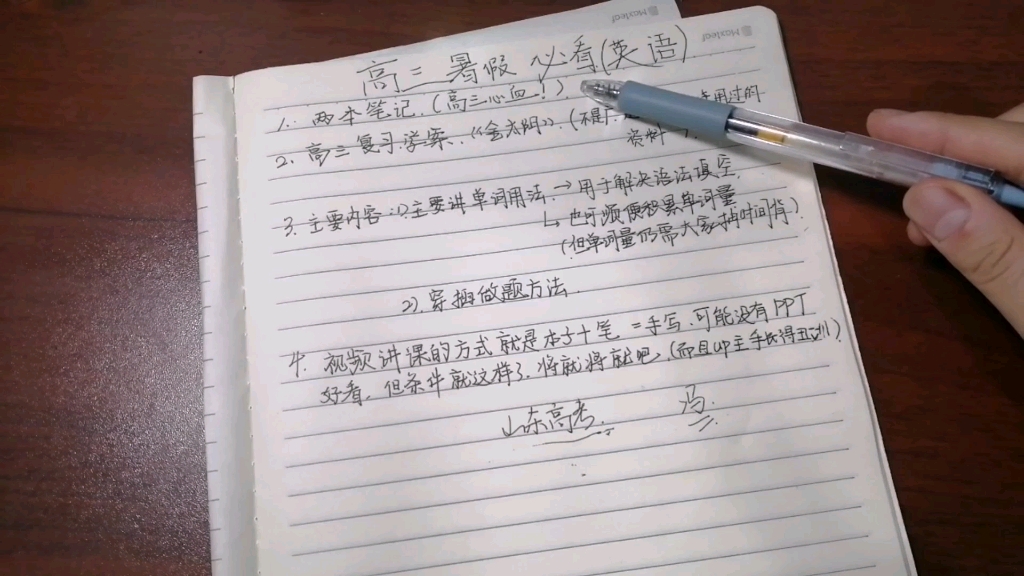 Maxleaf
Maxleaf
高三暑假必看(英语)
1. 两本笔记.(高三心血!)
2. 高三复习学案.《金太阳》.(不是 用过的
资料
3. 主要内容:1)主要讲单词用法.→用于解决语法填空.
↳也可顺便积累单词量
(但单词量仍需大家掉时间背)
2).穿插做题方法.
4. 视频讲课的方式就是本子+笔=手写.可能没有PPT
好看.但条件就这样了.将就将就吧.(而且up主手长得 )
山东高考. 冯.